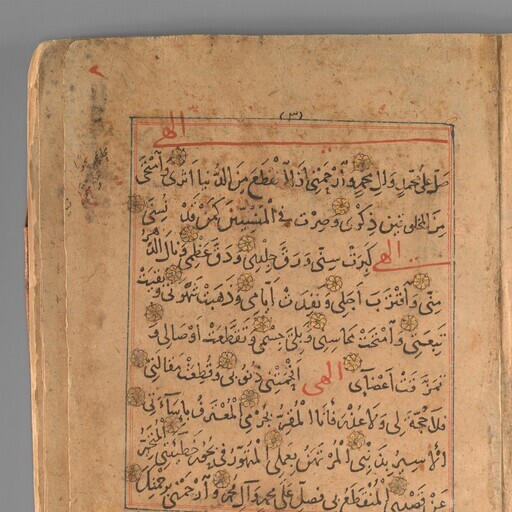 (٣)
الهي
صل على محمد وال محمد وارحمني اذا انقطع من الدنيا اثري وامتحى
من المخلوقين ذكري وصرت في المنسيين كمن قد نسي
الهي كبرت سني ورق جلدي ودق عظمي ونال الدهر
مني واقترب اجلي ونفدت ايامي وذهبت شهوتي وبقيت
تبعتي وامتحت محاسني وبلي جسمي وتقطعت اوصالي و
تفرقت اعضآئي الهي افحمتني ذنوبي وقطعت مقالتي
فلا حجة لي ولا عذر فانا المقر بجرمي المعترف باسآءتي
الاسير بذنبي المرتهن بعملي المتهور في بحور خطيئتي المتحير
عن قصدي المنقطع بي فصل على محمد وآل محمد وارحمني برحمتك